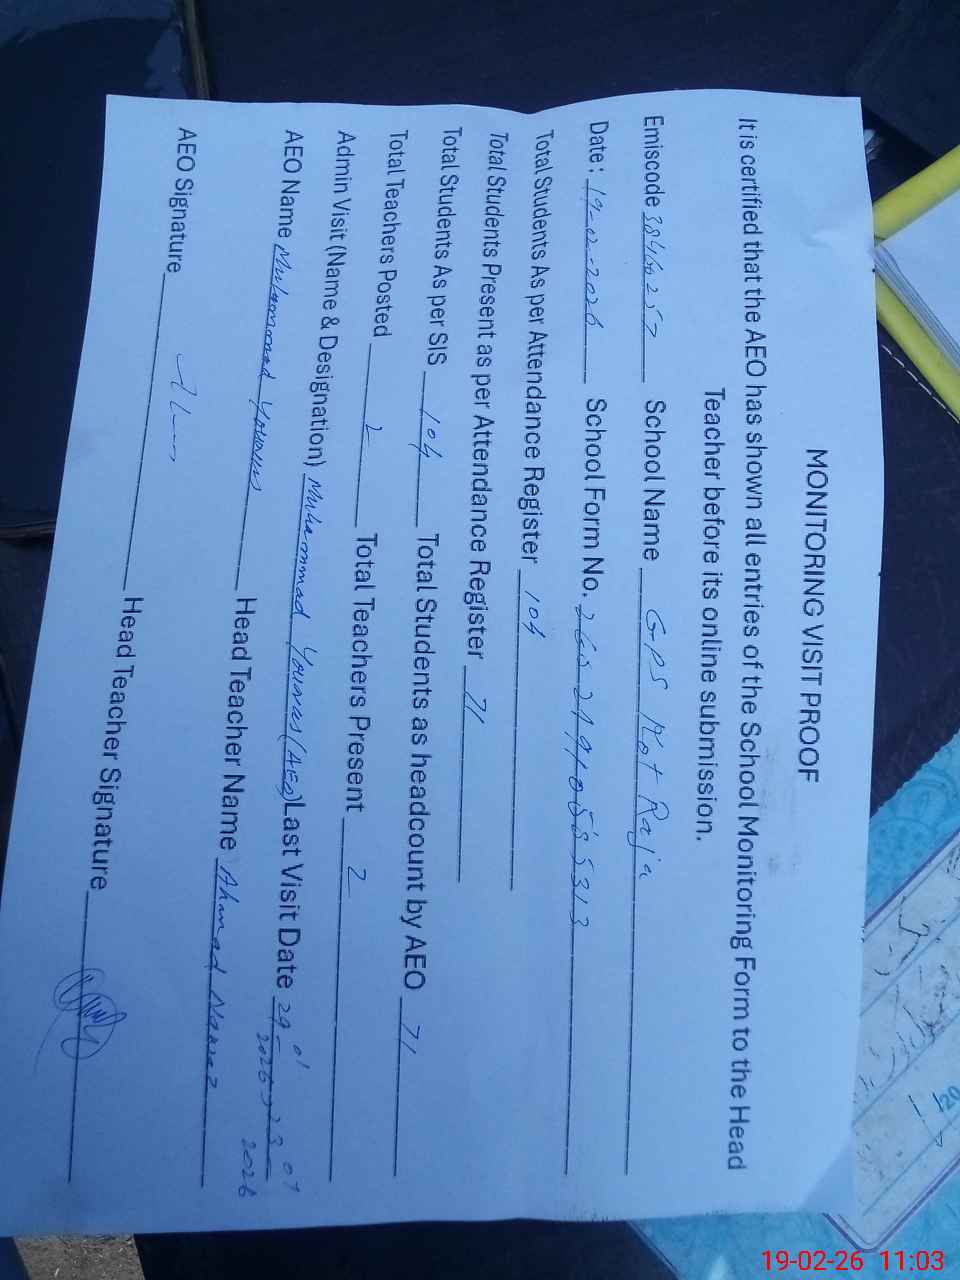 MONITORING VISIT PROOF
It is certified that the AEO has shown all entries of the School Monitoring Form to the Head
Teacher before its online submission.
Emiscode 38460257 School Name GPS Kot Raja
Date : 19-02-2026 School Form No.
Total Students As per Attendance Register 104
Total Students Present as per Attendance Register 71
Total Students As per SIS 104 Total Students as headcount by AEO 71
Total Teachers Posted 2 Total Teachers Present 2
Admin Visit (Name & Designation) Muhammad Younus (AEO) Last Visit Date 29 01 2026
AEO Name Muhammad Younus Head Teacher Name Ahmad Nawaz
AEO Signature Head Teacher Signature
19-02-26 11:03